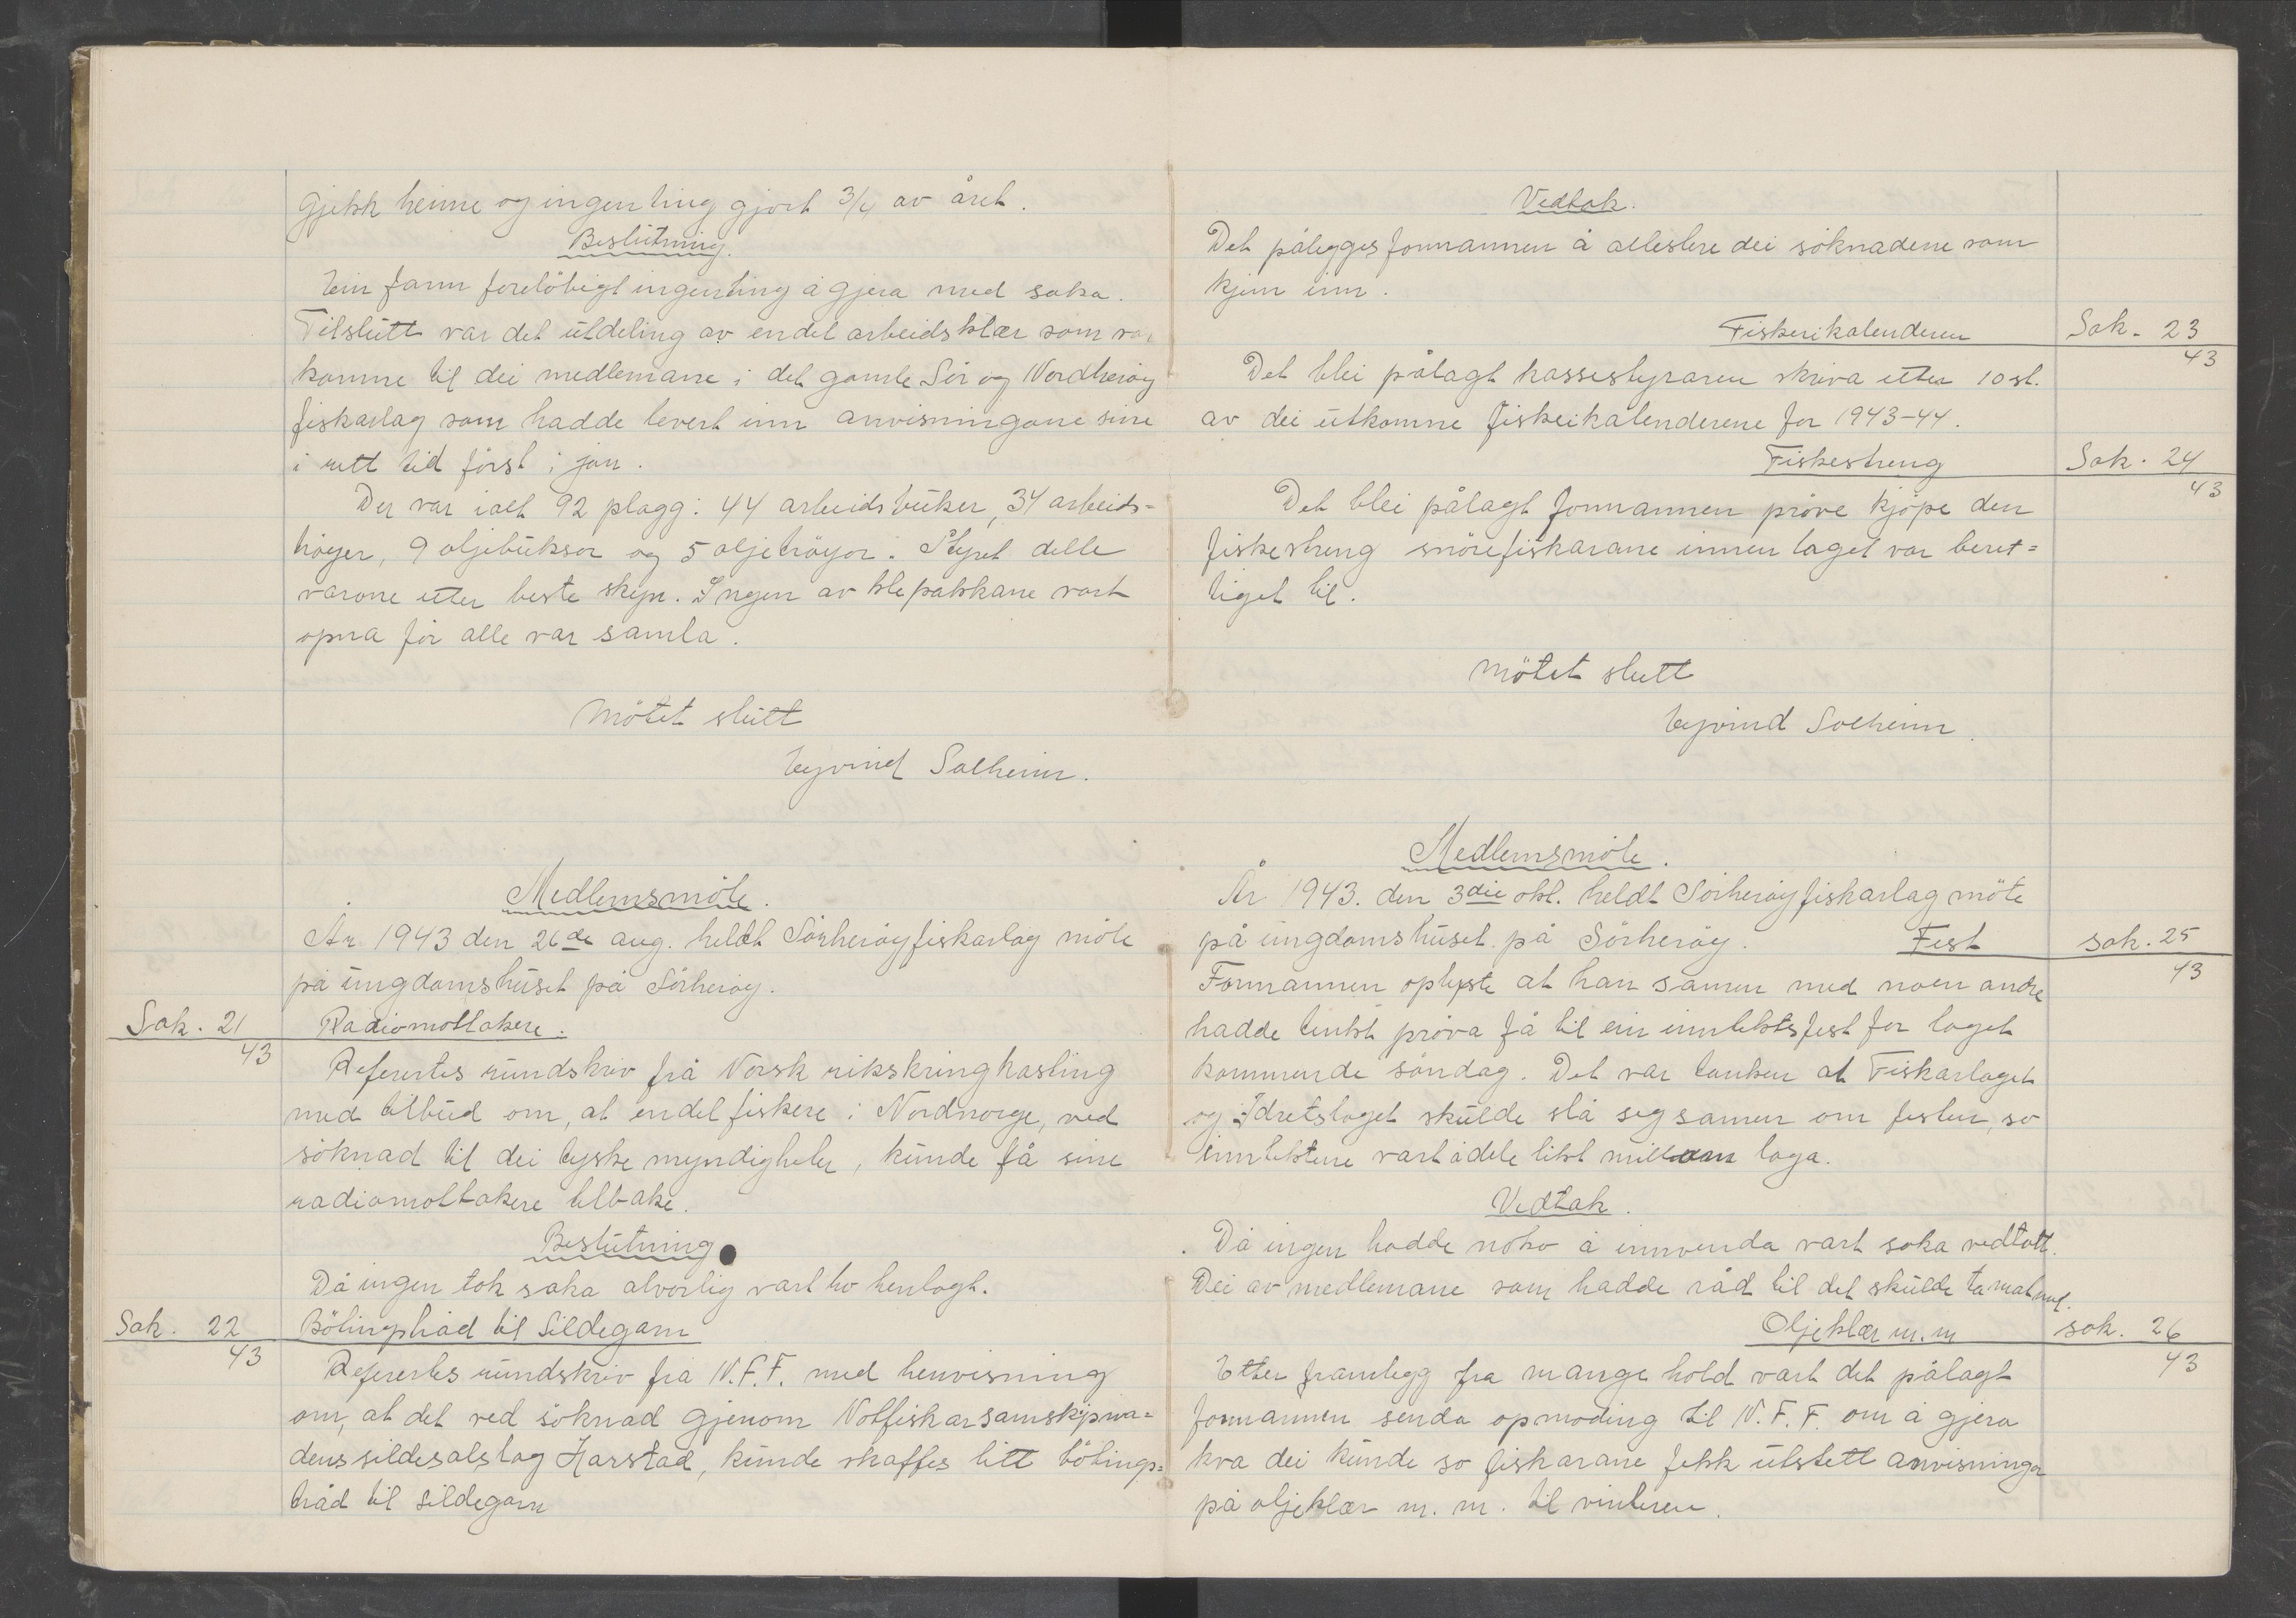 gjekk heime og ingenting gjort 3/4 av året.
Beslutning.
Ein fann foreløbigt ingenting å gjera med saka.
Tilslutt var det utdeling av endel arbeidsklær som var
komne til dei medlemane i det gamle Sör og Nordheröy
fiskarlag som hadde levert inn anvisningane sine
i rett tid först i jan.
Der var ialt 92 plagg: 44 arbeidsbukser, 34 arbeids=
tröyer, 9 oljebuksor og 5 oljetröyor. Styret delte
varone etter beste skjyn. Ingen av klepakkane vart
opna för alle var samla.
Mötet slutt
Eyvind Solheim.
Medlemsmöte.
År 1943 den 26de aug. heldt Sörheröy fiskarlag möte
på ungdomshuset på Sörheröy.
Sak. 21/43 Radiomottakere.
Referertes rundskriv frå Norsk rikskringkasting
med tilbud om, at endel fiskere i Nordnorge, ved
söknad til dei tyske myndigheter, kunde få sine
radiomottakere tilbake.
Beslutning
Då ingen tok saka alvorlig vart ho henlagt.
Sak. 22/43 Bötingstråd til Sildegarn
Referertes rundskriv fra N.F.F. med henvisning
om, at det ved söknad gjenom Notfiskarsamskipna=
dens sildesalslag Harstad, kunde skaffes litt bötings=
tråd til sildegarn
Vedtak.
Det pålegges formannen å attestere dei söknadene som
kjem inn.
Fiskerikalenderen Sak. 23/43
Det blei pålagt kassestyraren skriva etter 10 st.
av dei utkomne fiskeikalenderene for 1943-44.
Fiskestreng Sak. 24/43
Det blei pålagt formannen pröve kjöpe den
fiskestreng snörefiskarane innen laget var beret=
tiget til.
Mötet slutt
Eyvind Solheim.
Medlemsmöte.
År 1943. den 3die okt. heldt Sörheröy fiskarlag möte
på ungdomshuset på Sörheröy. Fest sak. 25/43
Formannen oplyste at han samen med noen andre
hadde tenkt pröva få til ein inntektsfest for laget
kommende söndag. Det var tanken at Fiskarlaget
og Idretslaget skulde slå seg samen om festen, so
inntektene vart å dele likt millom laga.
Vedtak.
Då ingen hadde noko å innvenda vart saka vedtatt.
Dei av medlemane som hadde råd til det skulde ta mat med.
Oljeklær m.m sak. 26/43
Etter framlegg fra mange hold vart det pålagt
formannen senda opmoding til N.F.F. om å gjera
kva dei kunde so fiskarane fekk utstett anvisninga
på oljeklær m.m. til vinteren.